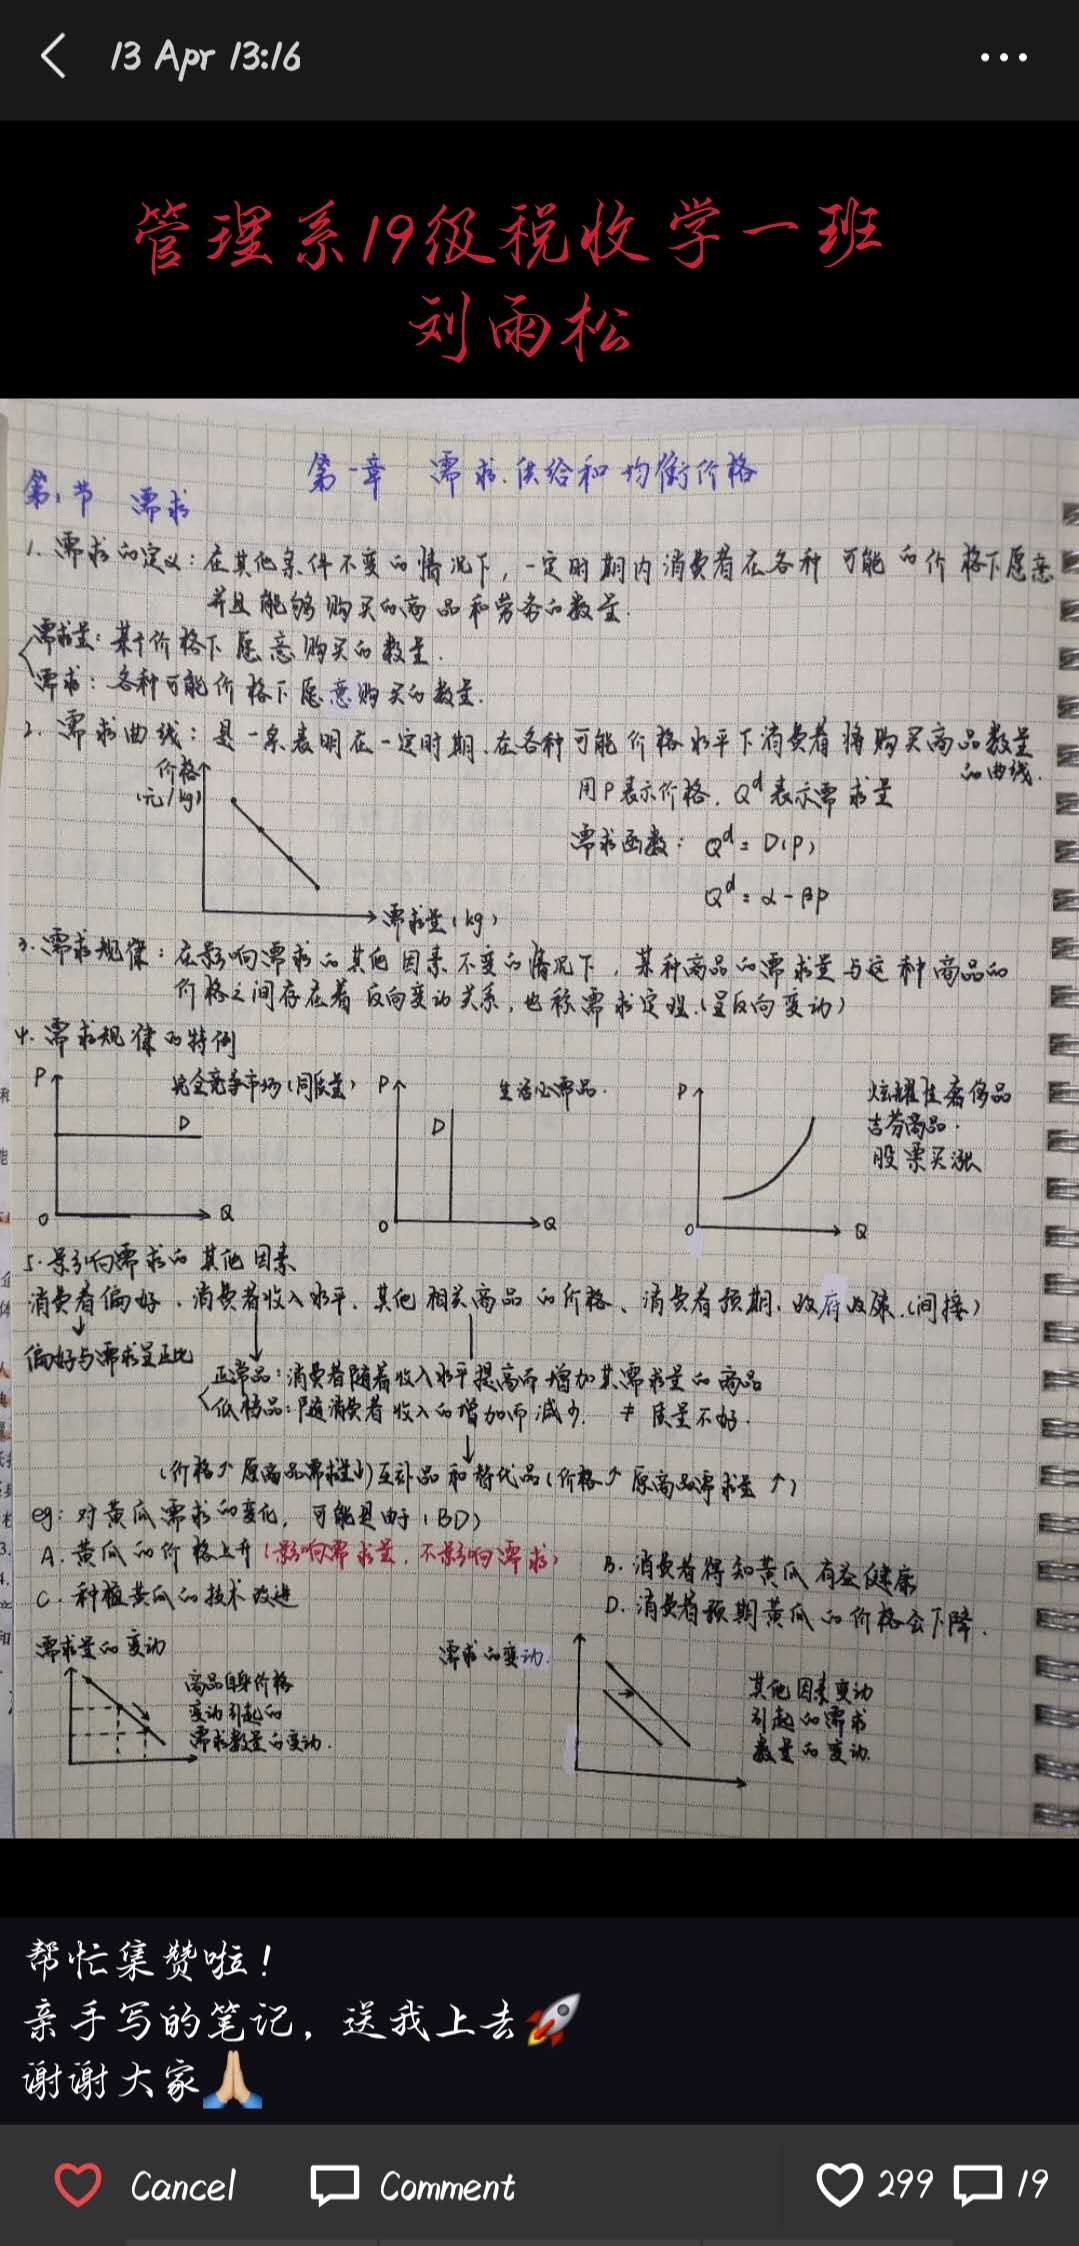 13 Apr 13:16
管理系19级税收学一班
刘雨松
第一章 需求.供给和均衡价格
第1节 需求
1. 需求的定义：在其他条件不变的情况下，一定时期内消费者在各种可能的价格下愿意
并且能够购买的商品和劳务的数量.
需求量：某个价格下愿意购买的数量.
需求：各种可能价格下愿意购买的数量.
2. 需求曲线：是一条表明在一定时期.在各种可能价格水平下消费者将购买商品数量
的曲线.
价格
(元/kg)
需求量(kg)
用P表示价格. Qᵈ表示需求量
需求函数：Qᵈ = D(P)
Qᵈ = α - βP
3. 需求规律：在影响需求的其他因素不变的情况下，某种商品的需求量与这种商品的
价格之间存在着反向变动关系，也称需求定理.(呈反向变动)
4. 需求规律的特例
P 完全竞争市场(同质量)
D
O Q
P 生活必需品.
D
O Q
P 炫耀性奢侈品
吉芬商品.
股票买涨
O Q
5. 影响需求的其他因素
消费者偏好、消费者收入水平、其他相关商品的价格、消费者预期、政府政策.(间接)
偏好与需求呈正比
正常品：消费者随着收入水平提高而增加其需求量的商品
低档品：随消费者收入的增加而减少. ≠ 质量不好.
(价格↑ 原商品需求量↓)互补品和替代品(价格↑ 原商品需求量↑)
eg：对黄瓜需求的变化，可能是由于(BD)
A. 黄瓜的价格上升(影响需求量，不影响需求)
B. 消费者得知黄瓜有益健康
C. 种植黄瓜的技术改进
D. 消费者预期黄瓜的价格会下降.
需求量的变动
商品自身价格
变动引起的
需求数量的变动.
需求的变动.
其他因素变动
引起的需求
数量的变动.
帮忙集赞啦！
亲手写的笔记，送我上去🚀
谢谢大家🙏🏻
Cancel
Comment
299
19